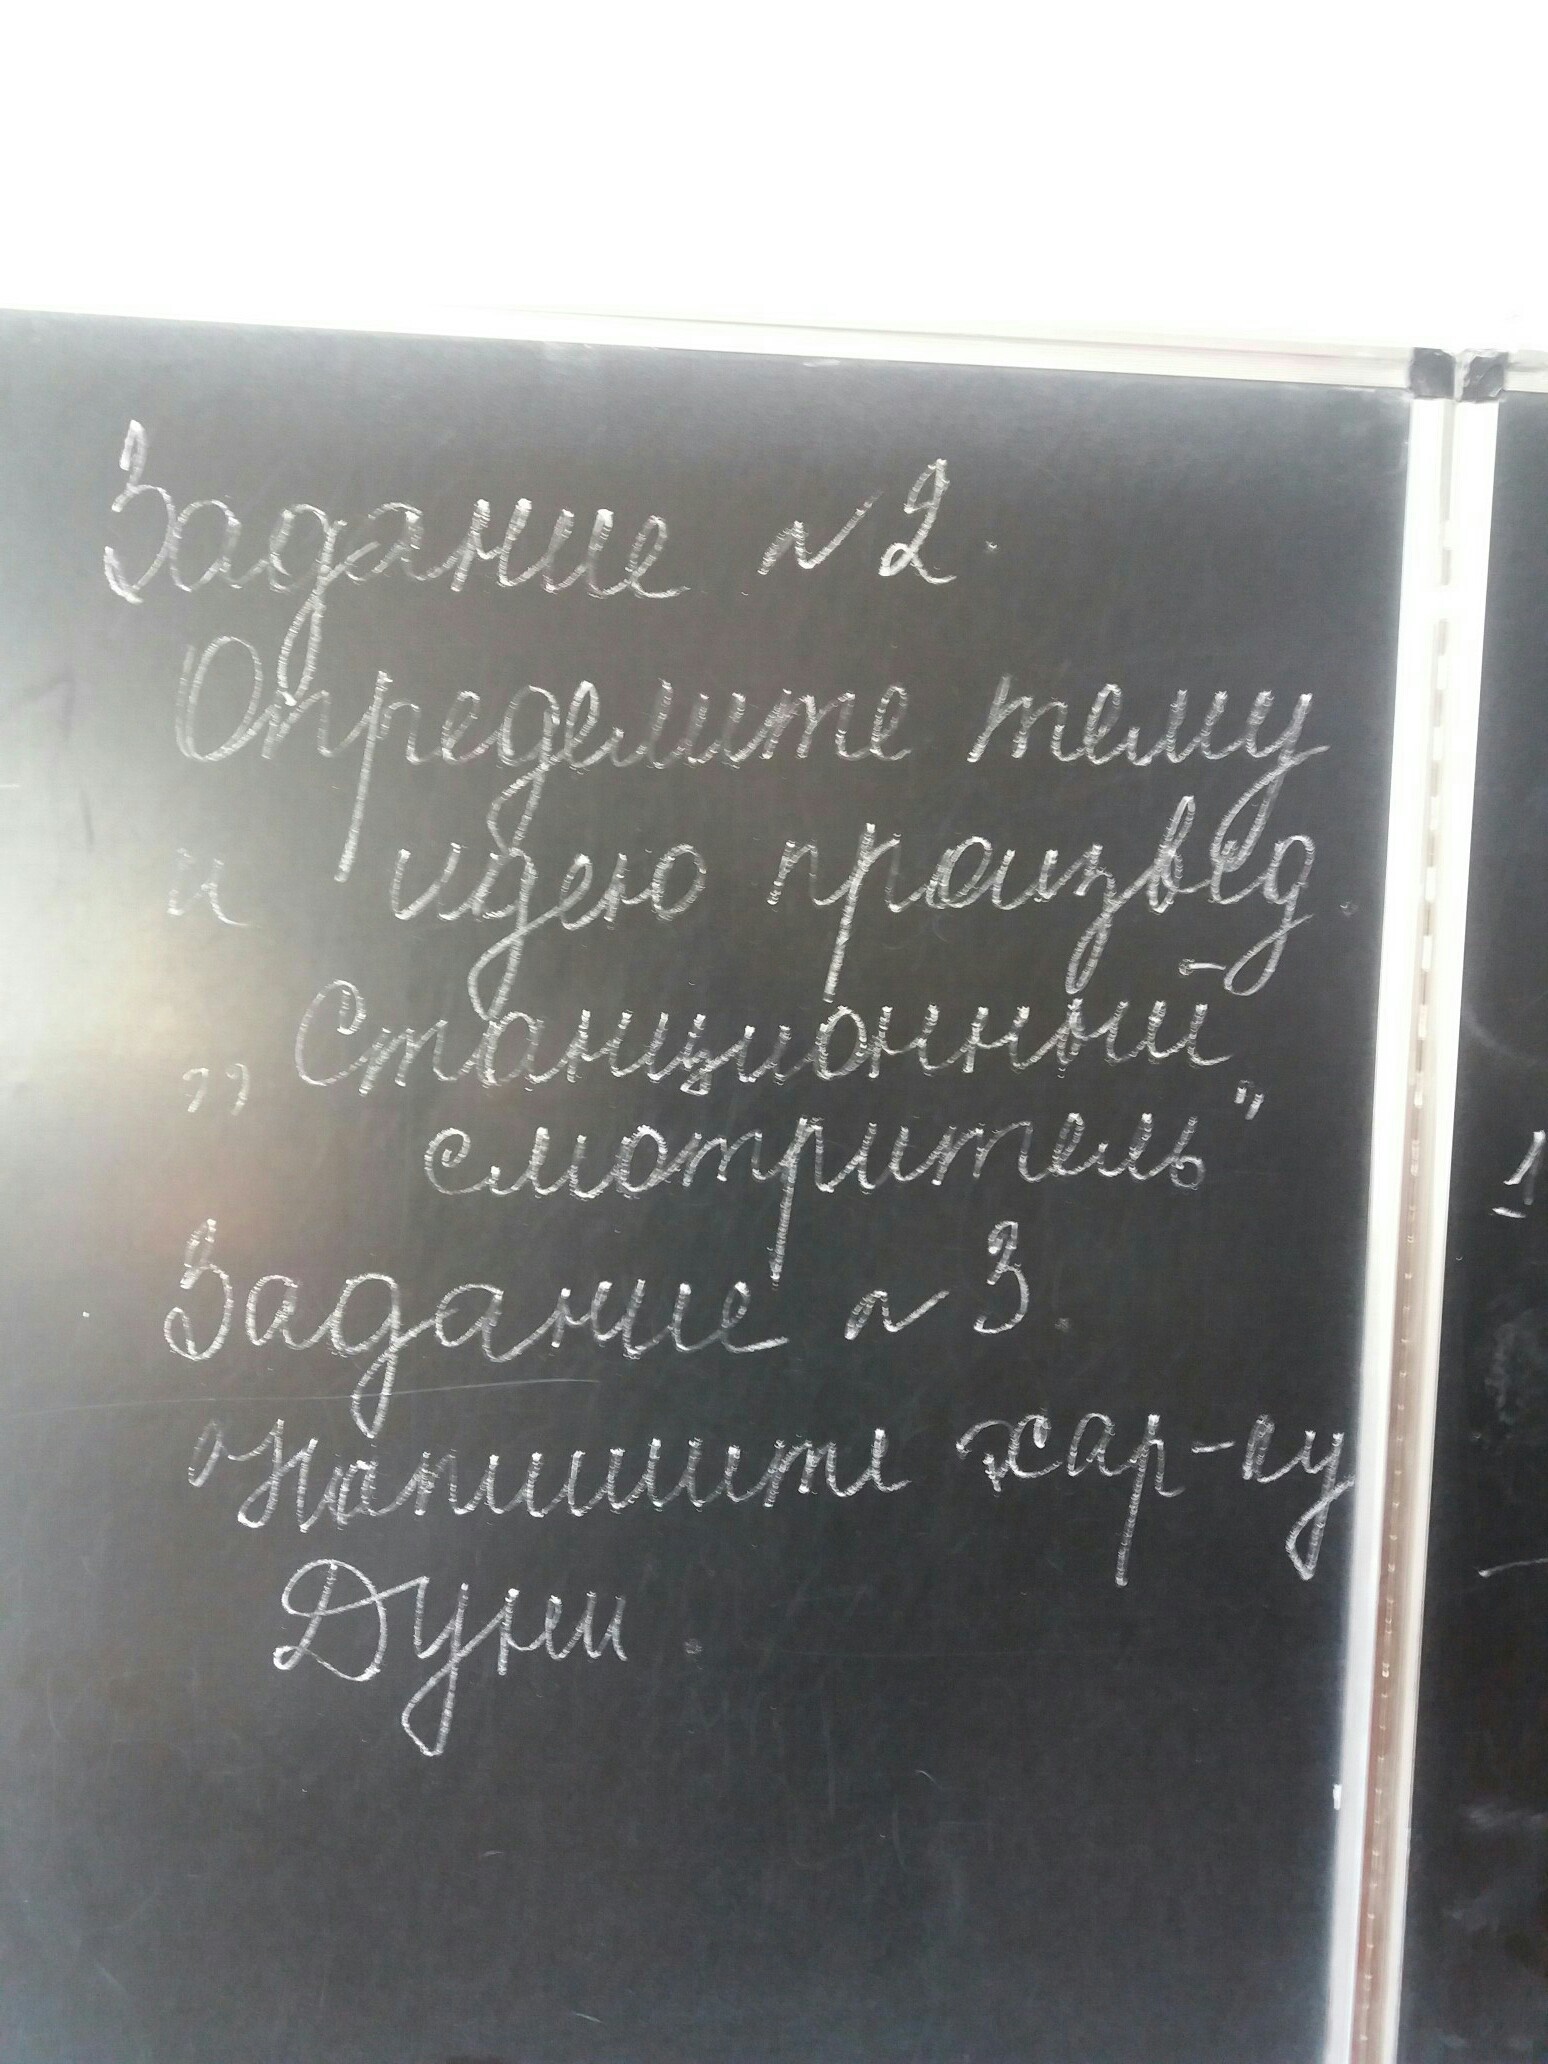 Задание №2.
Определите тему
и идею произвед.
„Станционный
смотритель"
Задание №3.
Напишите хар-ку
Дуни.
1